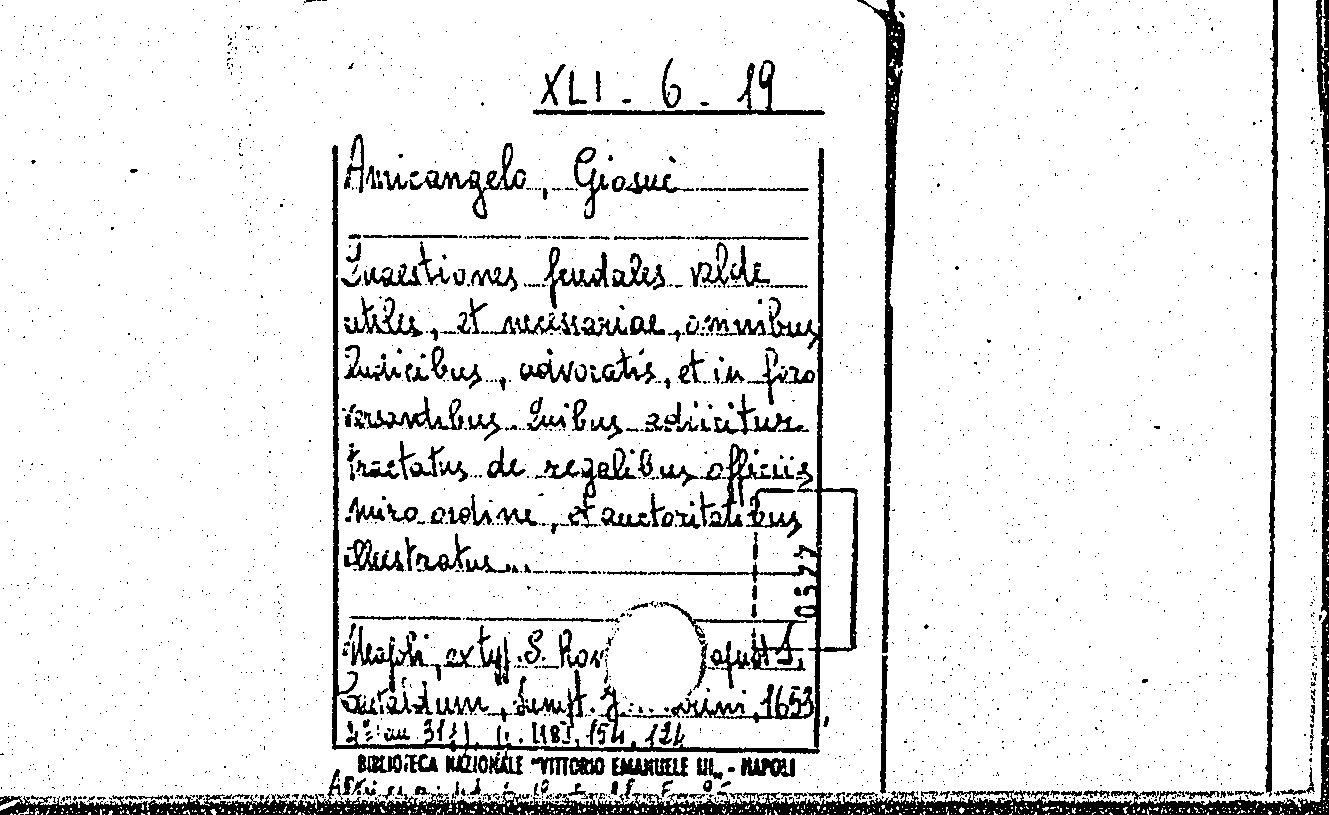 XLI - 6 - 19
Amicangelo, Giosuè
Quaestiones feudales valde
utiles, et necessariae, omnibus
Iudicibus, advocatis, et in foro
versandibus. Quibus adiicitur
tractatus de regalibus officiis
miro ordine, et auctoritatibus
illustratus...
0577
Neapoli, ex typ. S. Ron apud I.
Gataldum, Sumpt. J.... 1653,
[18], 154, 124
BIBLIOTECA NAZIONALE "VITTORIO EMANUELE III" - NAPOLI